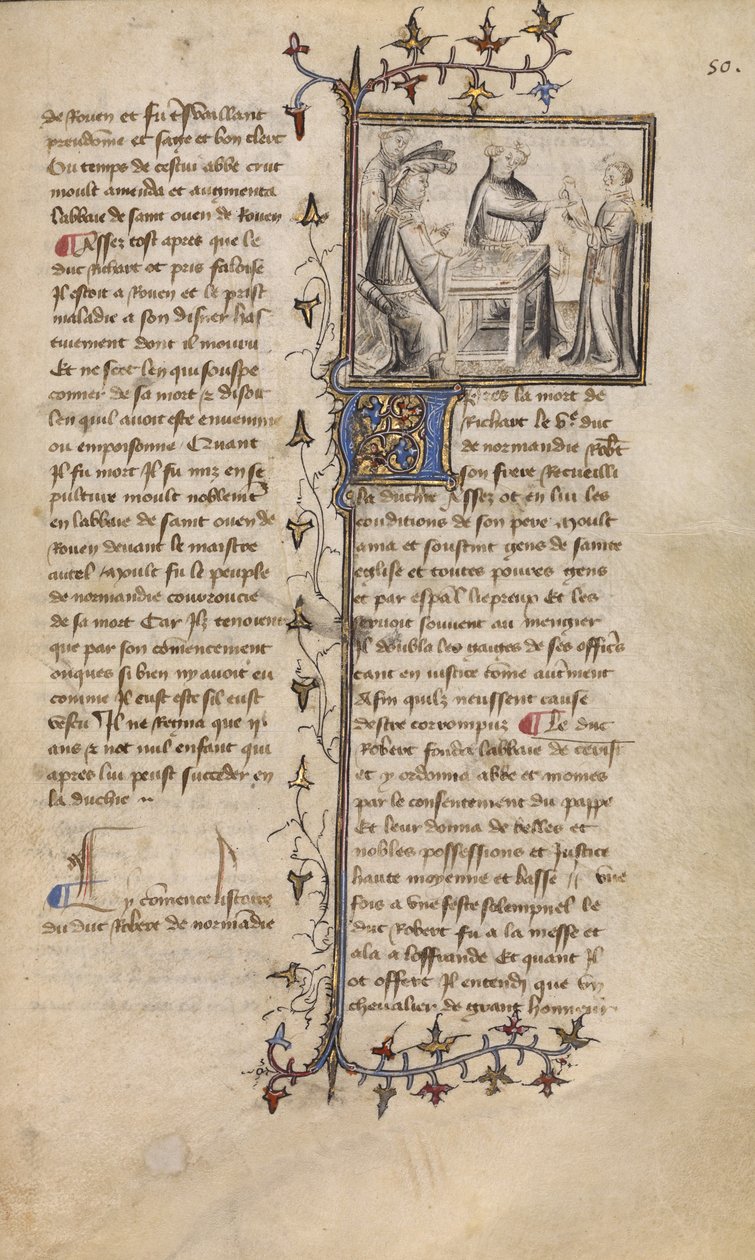 50.
de Rouen et fu tres vaillant
preudome et sage et bon clerc
Ou temps de cestui abbe crut
moult amenda et augmenta
labbaie de saint ouen de Rouen
Assez tost apres que le
duc Richart ot pris faloise
Il estoit a Rouen et le prist
maladie a son disner has
tiuement dont il mouru
Et ne scet len qui souspe
conner de sa mort & disoit
len quil auoit este enuenime
ou empoisonne Quant
Il fu mort Il fu miz en se
pulture moult noblemt
en labbaie de saint ouen de
Rouen deuant le maistre
autel Moult fu le peuple
de normandie couroucie
de sa mort Car Ilz tenoient
que par son comencement
onques si bien ny auoit eu
comme Il eust este sil eust
vescu Il ne Regna que ij
ans & not nul enfant qui
apres lui peust succeder en
la duchie
Cy comence listoire
du duc Robert de normandie
Apres la mort de
Richart le ve duc
de normandie Robt
son frere Recueilli
la duchie Assez ot en lui les
conditions de son pere Moult
ama et soustint gens de sainte
eglise et toutes poures gens
et par espal liepreux Et les
seruoit souvent au mengier
Il doubla les gaiges de ses officrs
tant en iustice come autrment
Afin quilz neussent cause
destre corrompuz Le duc
Robert fonda labbaie de cerisi
et y ordonna abbe et moines
par le consentement du pappe
Et leur donna de belles et
nobles possessions et Justice
haute moyenne et basse vne
fois a vne feste solempnel le
duc Robert fu a la messe et
ala a loffrande Et quant Il
ot offert Il entendi que vn
cheualier de grant honneur